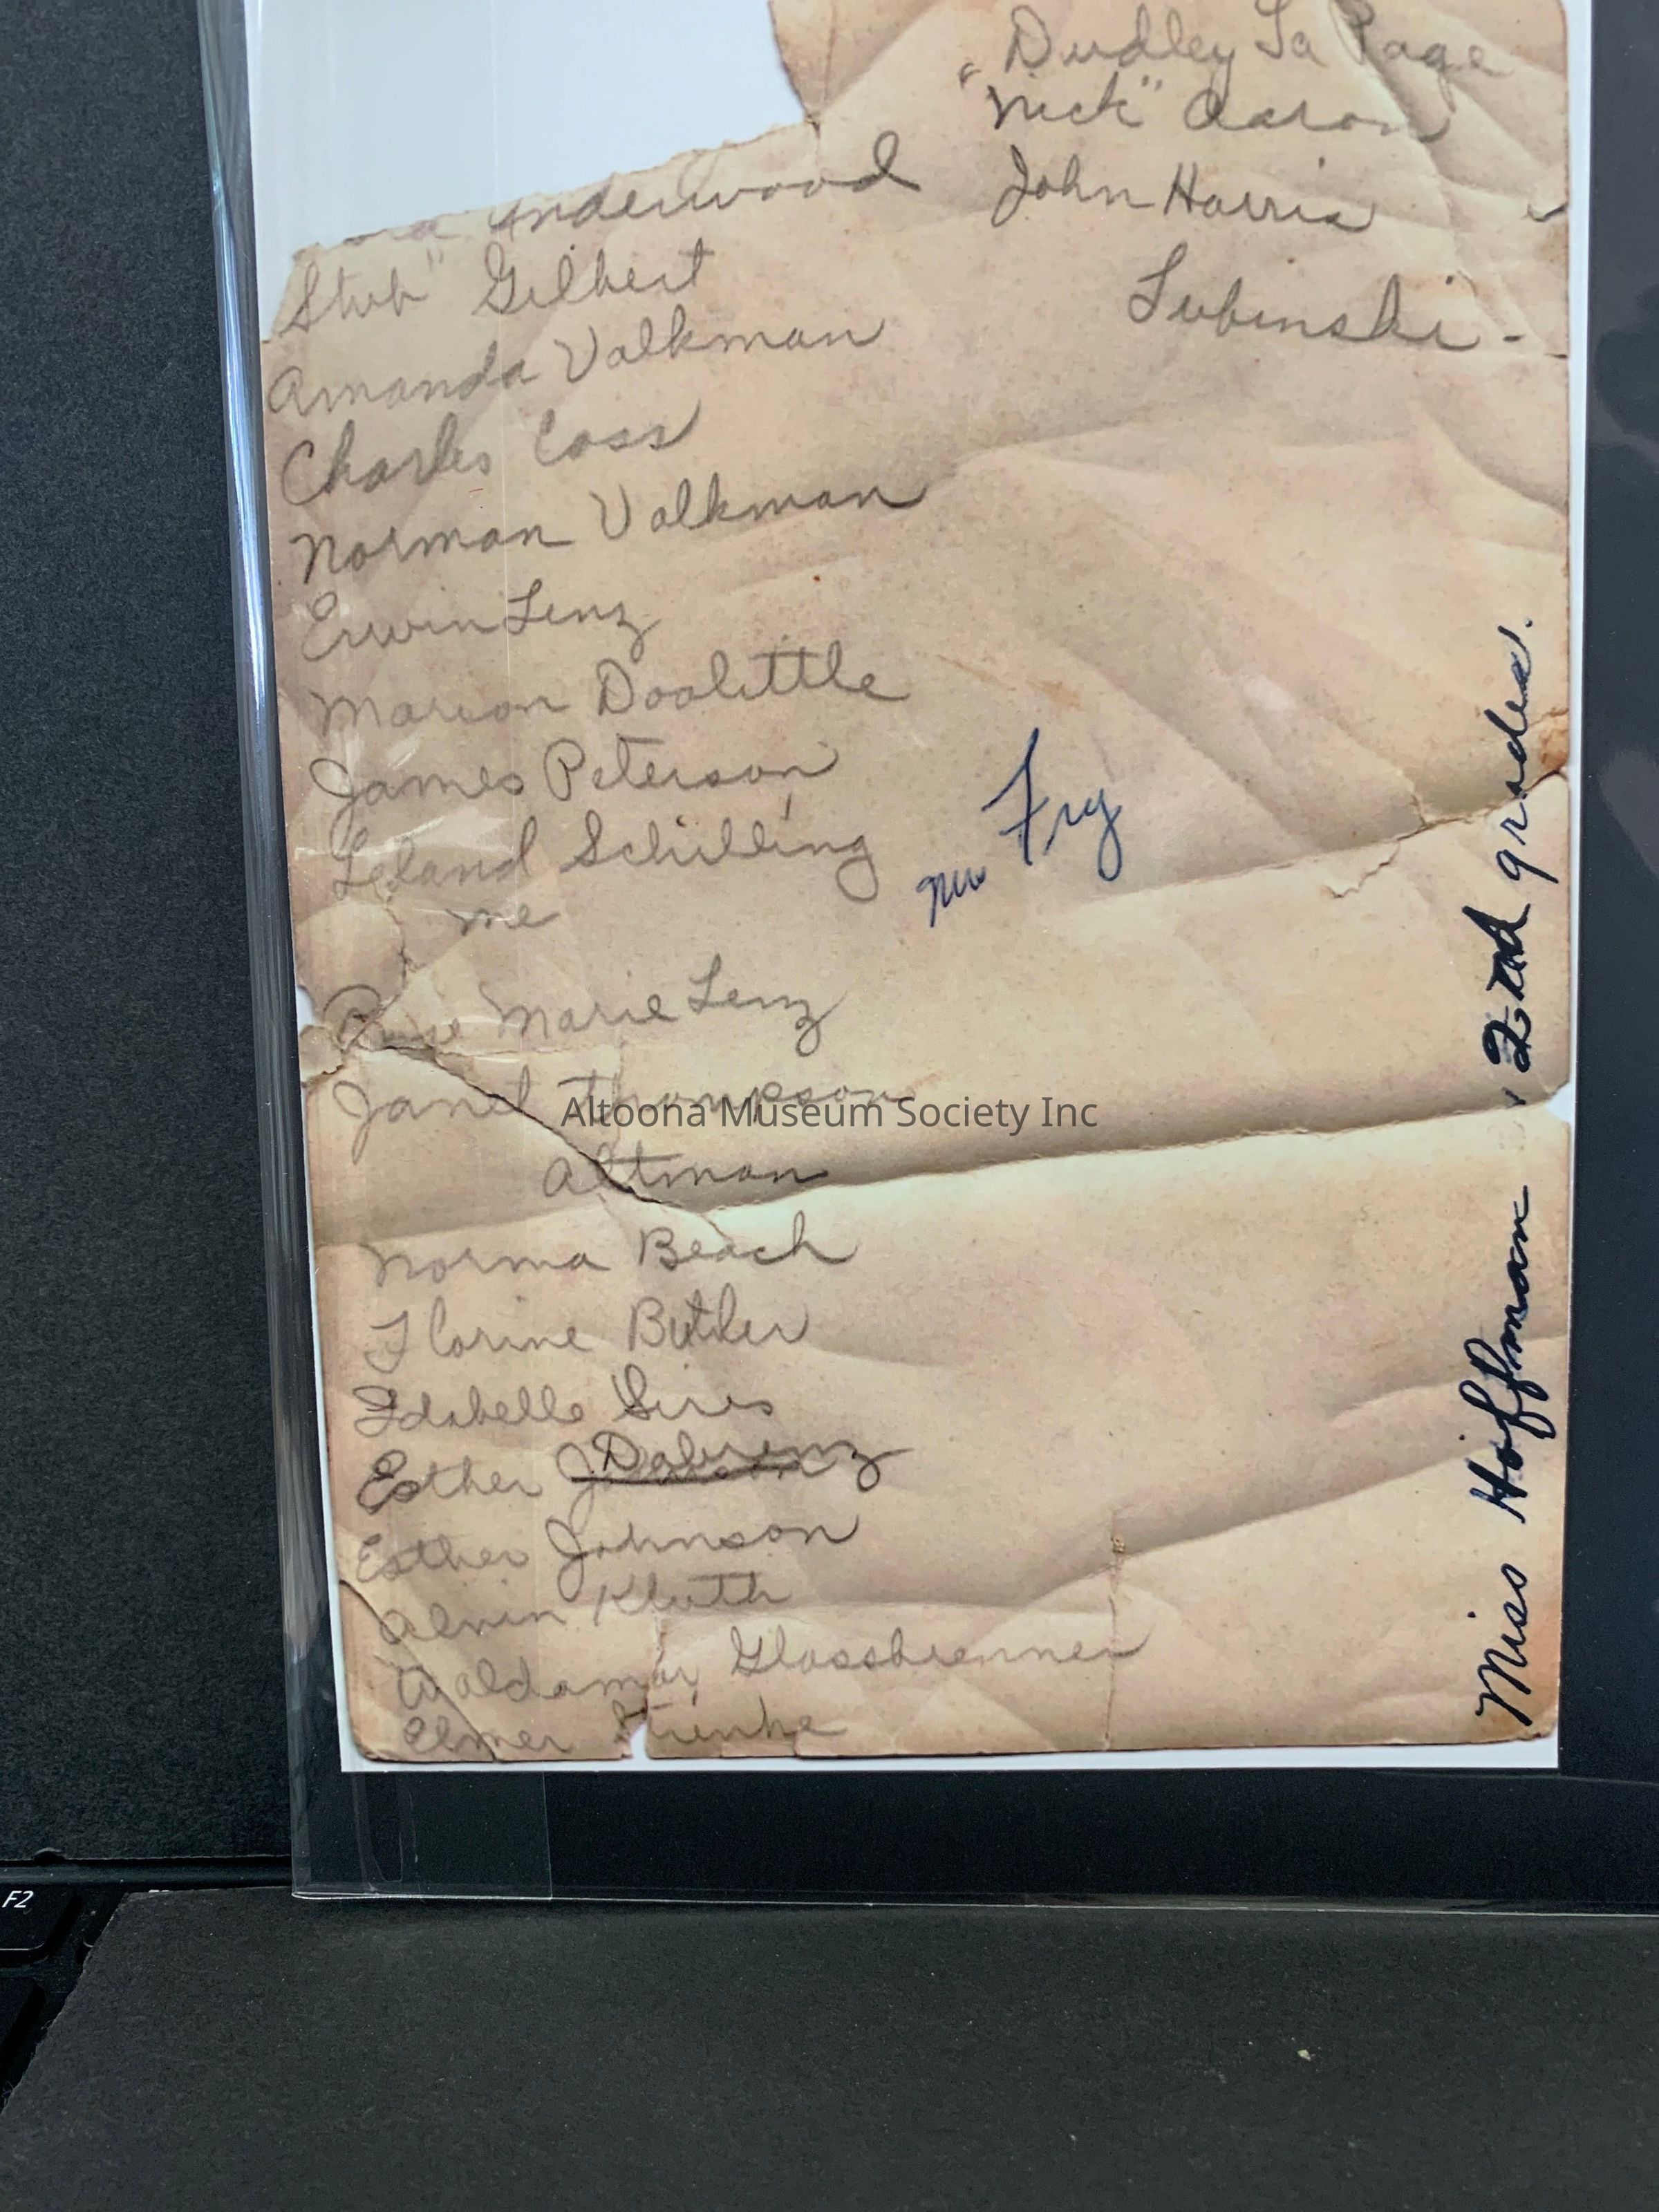 Dudley La Page
"Nick" Aaron
John Harris
Lubinski -
Underwood
Stub" Gilbert
Amanda Volkman
Charles Coss
Norman Volkman
Erwin Lenz
Marion Doolittle
James Peterson
Leland Schilling
me
Marie Lenz
Janet Thompson
Altman
Norma Beach
Florine Butler
Idabelle Sires
Esther Dabrenz
Esther Johnson
Alvin Kluth
Waldamar Glassbrenner
Elmer Strenke
Fry
Miss Hoffman 2nd grades.
Altoona Museum Society Inc
F2